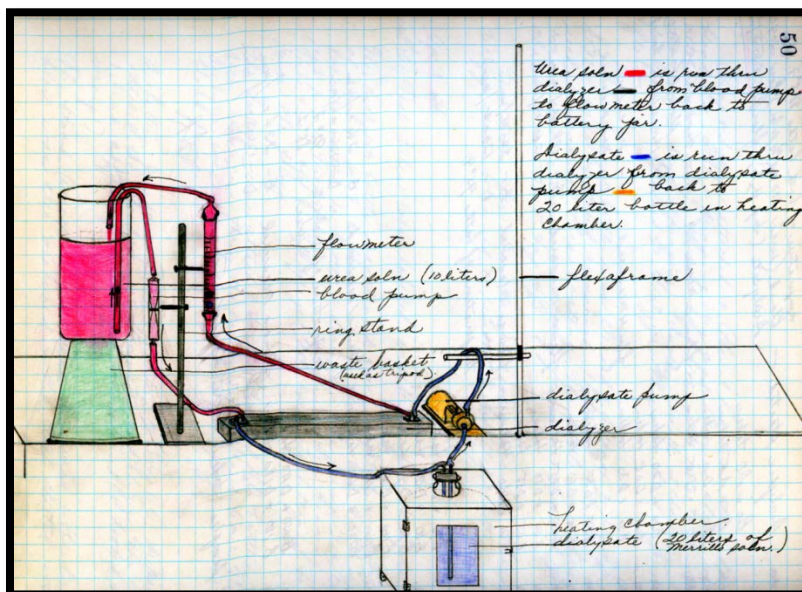 50
Urea soln is run thru
dialyzer from blood pump
to flowmeter back to
battery jar.
Dialysate is run thru
dialyzer from dialysate
pump back to
20 liter bottle in heating
chamber.
flowmeter
urea soln (10 liters)
blood pump
ring stand
waste basket
(used as tripod)
flexaframe
dialysate pump
dialyzer
heating chamber
dialysate (20 liters of
Merrills soln.)